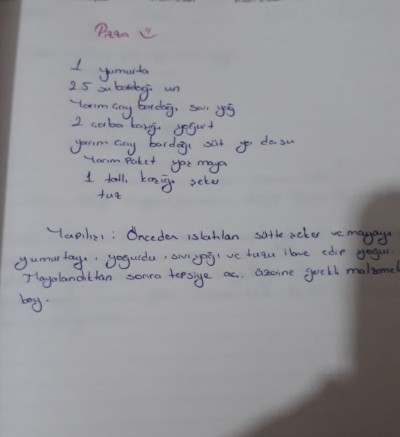 Pizza
1 yumurta
2.5 su bardağı un
Yarım çay bardağı sıvı yağ
2 çorba kaşığı yoğurt
yarım çay bardağı süt ya da su
Yarım Paket yaş maya
1 tatlı kaşığı şeker
tuz
Yapılışı : Önceden ıslatılan sütle şeker ve mayayı
yumurtayı, yoğurdu, sıvıyağı ve tuzu ilave edip yoğur.
Mayalandıktan sonra tepsiye aç, üzerine gerekli malzemel
koy.